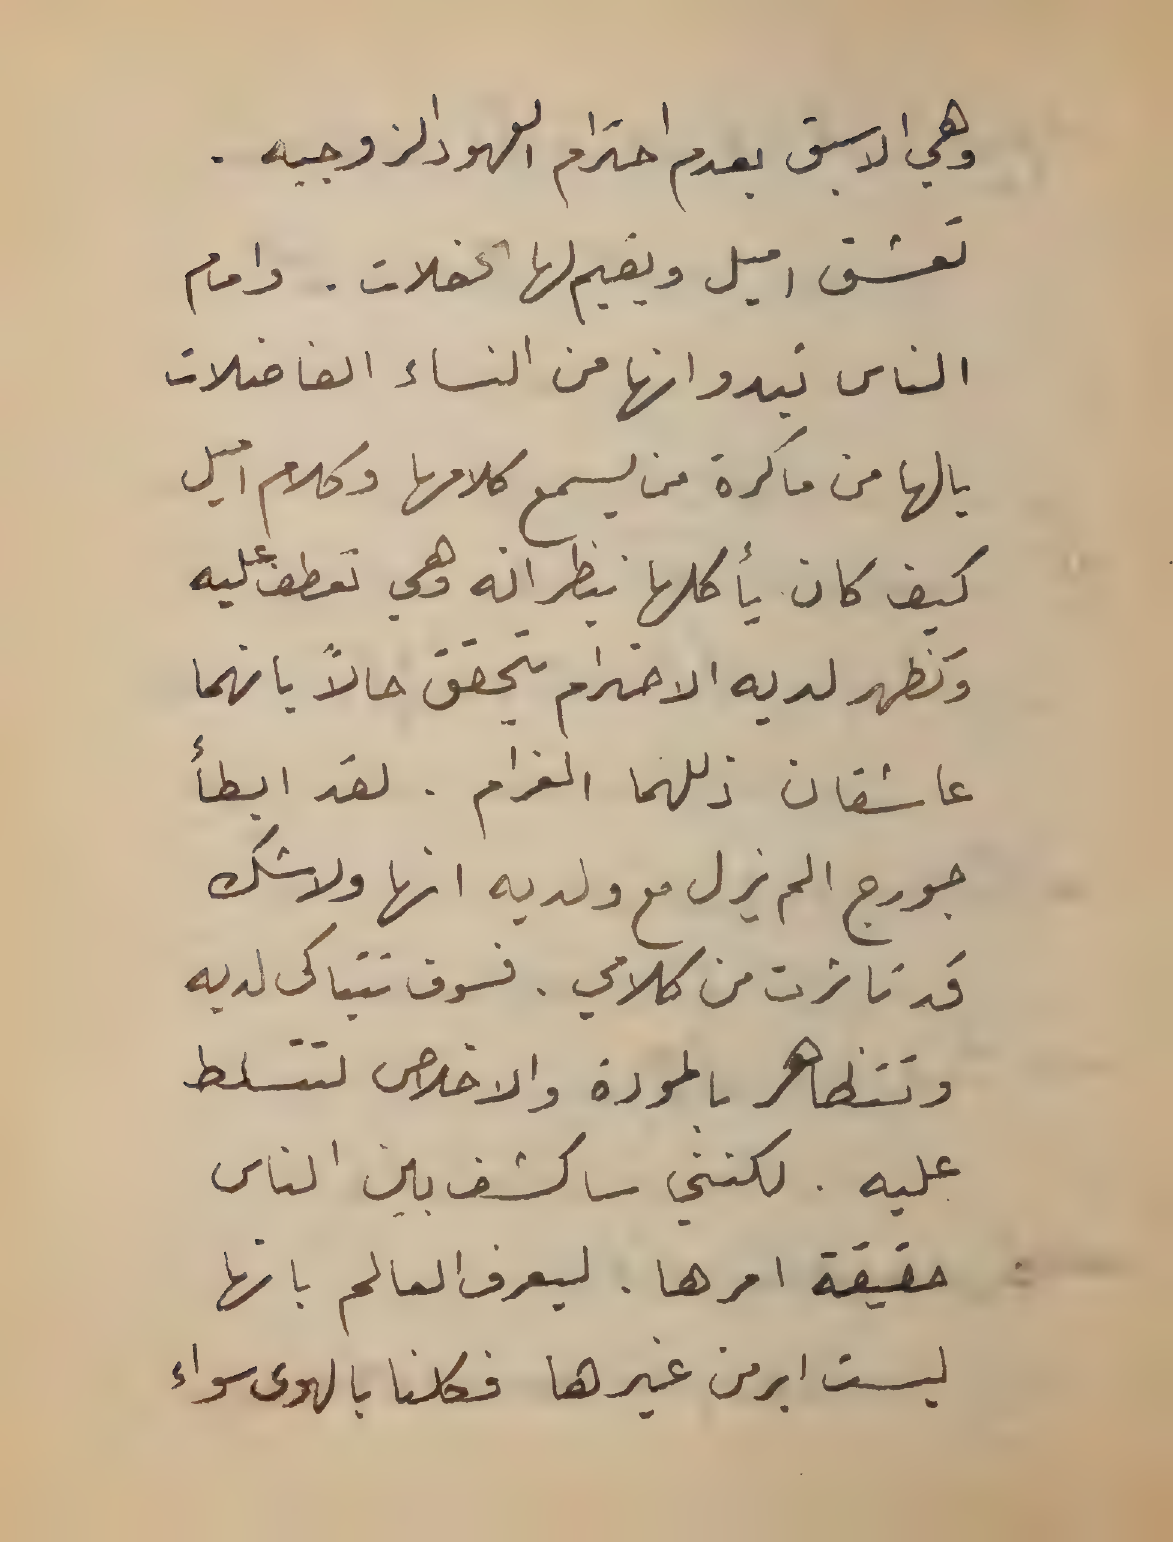 وهي الاسبق بعدم احترام العهود الزوجيه .
تعشق اميل ويقيم لها الحفلات . وامام
الناس تبدو انها من النساء الفاضلات
يالها من ماكرة من يسمع كلامها وكلام اميل
كيف كان يأكلها بنظراته وهي تعطف عليه
وتظهر لديه الاحترام يتحقق حالاً بانهما
عاشقان ذللهما الغرام . لقد ابطأ
جورج الم يزل مع ولديه انها ولاشك
قد تاثرت من كلامي . فسوف تتباكى لديه
وتتظاهر بالمودة والاخلاص لتتسلط
عليه . لكنني ساكشف بين الناس
حقيقة امرها . ليعرف العالم بانها
ليست ابر من غيرها فكلنا بالهوى سواء